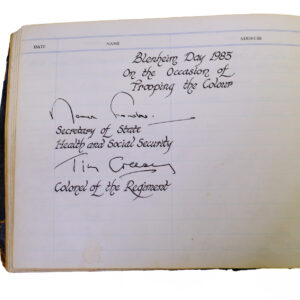 DATE NAME ADDRESS
Blenheim Day 1985
On the Occasion of
Trooping the Colour
Norman Fowler
Secretary of State
Health and Social Security
Tim Creasey
Colonel of the Regiment